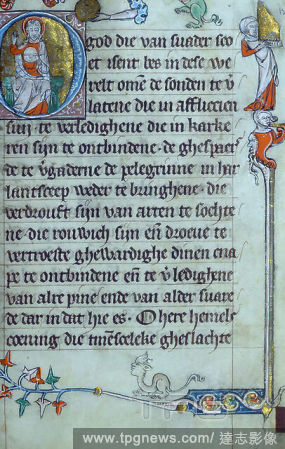 O god die van suader sco
et isent bes in dese we
relt omē de sonden te v̄
latene die in afflicien
sijn· te verledighene die in karke
ren sijn te ontbindene· de ghespaer
de te v̄gaderne de pelegrinne in har
lantsceep weder te bringhene· die
verdrouft sijn van arten te sochte
ne· die rouwich sijn eñ droeue te
vertroeste ghewardighe dinen cna
pe te ontbindene eñ te v̄ledighene
van alre pine ende van alder suare
de dar in dat hie es· O here hemels
coening die
gheslachte
www.tpgnews.com/ 達志影像